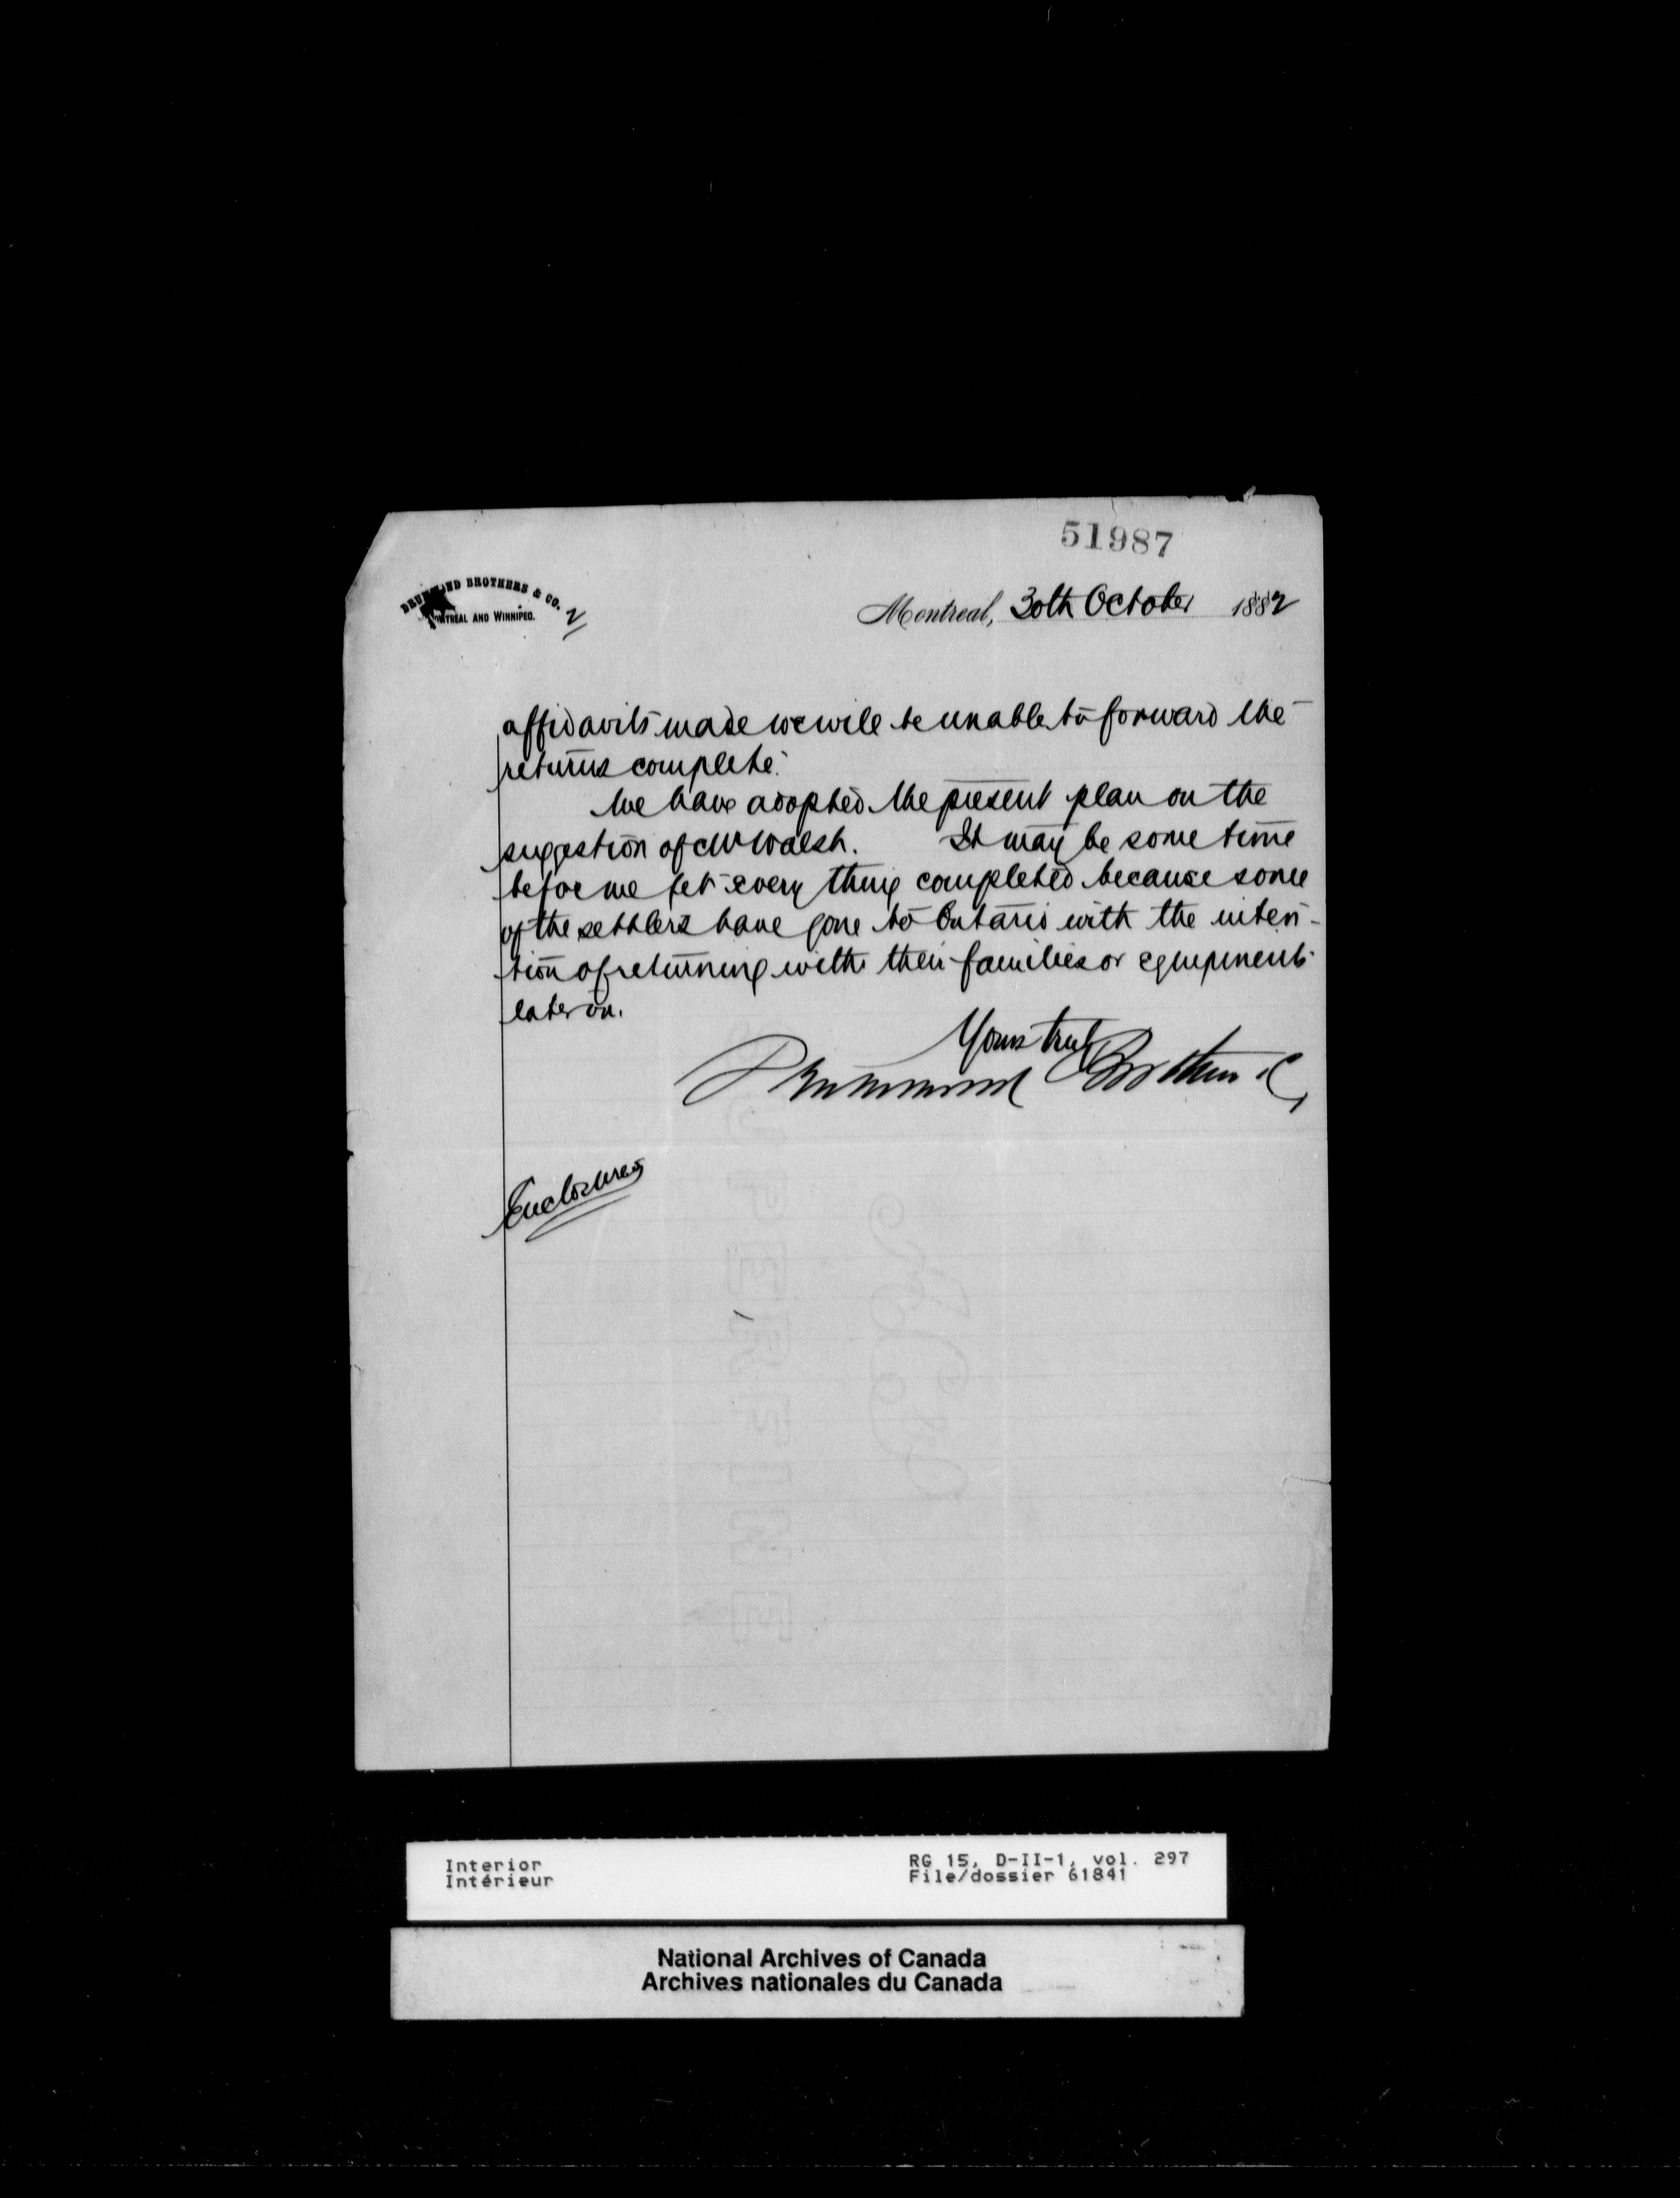 51987
DRUMMOND BROTHERS & CO.
MONTREAL AND WINNIPEG.
2
Montreal, 30th October 1882
affidavits made we will be unable to forward the
returns complete.
We have adopted the present plan on the
suggestion of Mr Walsh. It may be some time
before we get every thing completed because some
of the settlers have gone to Ontario with the inten-
tion of returning with their families or equipments
later on.
Yours truly
Drummond Brothers & Co
Enclosures
SUPERFINE
Interior
Intérieur
RG 15, D-II-1, vol. 297
File/dossier 61841
National Archives of Canada
Archives nationales du Canada